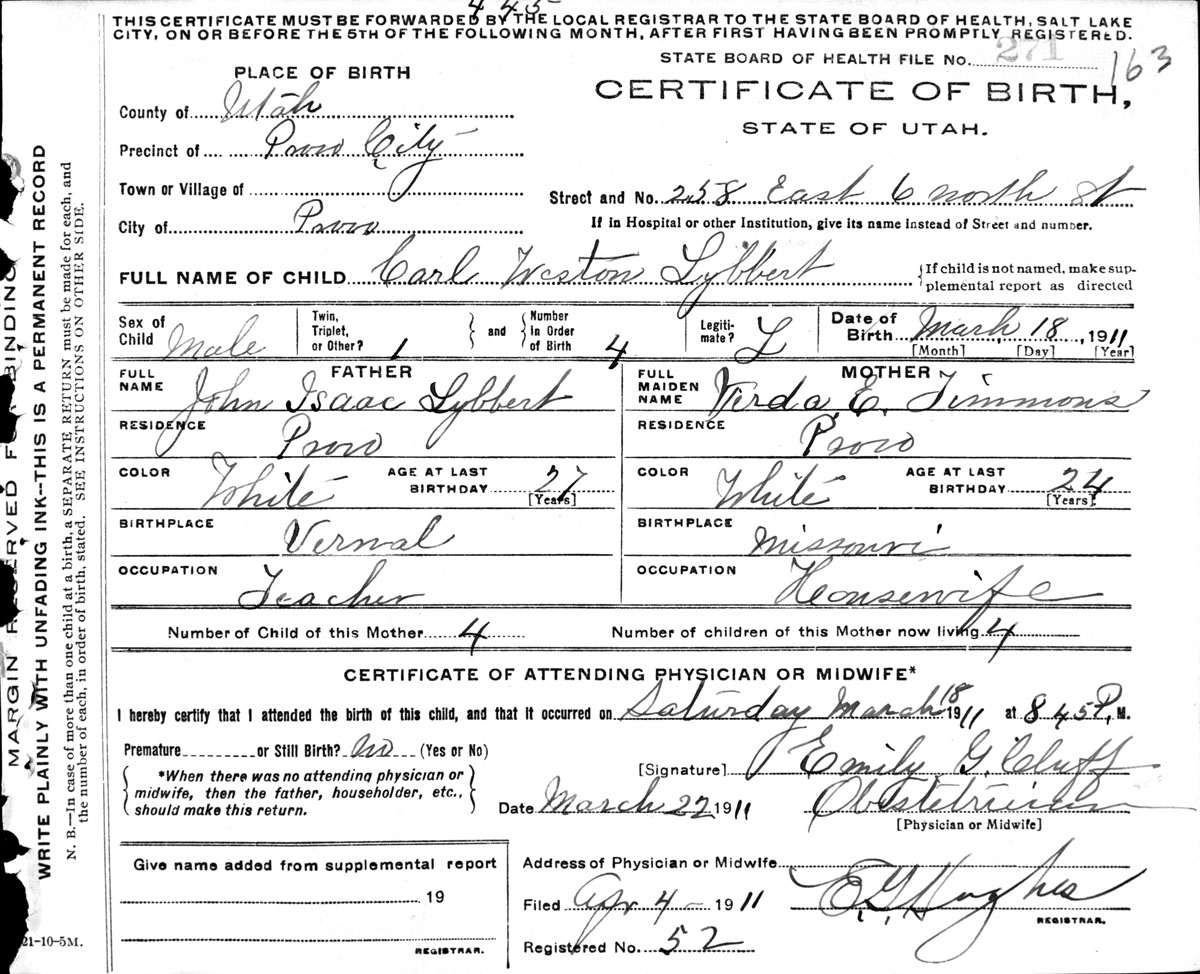 445
THIS CERTIFICATE MUST BE FORWARDED BY THE LOCAL REGISTRAR TO THE STATE BOARD OF HEALTH, SALT LAKE
CITY, ON OR BEFORE THE 5TH OF THE FOLLOWING MONTH, AFTER FIRST HAVING BEEN PROMPTLY REGISTERED.
STATE BOARD OF HEALTH FILE No. 271 163
PLACE OF BIRTH
CERTIFICATE OF BIRTH,
STATE OF UTAH.
County of Utah
Precinct of Provo City
Town or Village of
Street and No. 258 East 6 north St
City of Provo
If in Hospital or other Institution, give its name instead of Street and number.
FULL NAME OF CHILD Carl Weston Lybbert {If child is not named, make sup-
plemental report as directed
Sex of Child Male
Twin, Triplet, or Other? 1 and Number In Order of Birth 4
Legiti-mate? L
Date of Birth March 18, 1911
[Month] [Day] [Year]
FATHER
FULL NAME John Isaac Lybbert
RESIDENCE Provo
COLOR White AGE AT LAST BIRTHDAY 27 [Years]
BIRTHPLACE Vernal
OCCUPATION Teacher
MOTHER
FULL MAIDEN NAME Verda E. Timmons
RESIDENCE Provo
COLOR White AGE AT LAST BIRTHDAY 24 [Years]
BIRTHPLACE Missouri
OCCUPATION Housewife
Number of Child of this Mother 4 Number of children of this Mother now living 4
CERTIFICATE OF ATTENDING PHYSICIAN OR MIDWIFE*
I hereby certify that I attended the birth of this child, and that it occurred on Saturday March 18 1911 at 8 45 P, M.
Premature or Still Birth? no (Yes or No)
*When there was no attending physician or
midwife, then the father, householder, etc.,
should make this return.
[Signature] Emily G. Cluff
Date March 22 1911 Obstetrician
[Physician or Midwife]
Give name added from supplemental report
19
REGISTRAR.
Address of Physician or Midwife
Filed Apr 4 - 1911 E. G. Hughes
REGISTRAR.
Registered No. 52
21-10-5M.
MARGIN RESERVED FOR BINDING
WRITE PLAINLY WITH UNFADING INK--THIS IS A PERMANENT RECORD
N. B.—In case of more than one child at a birth, a SEPARATE RETURN must be made for each, and
the number of each, in order of birth, stated. SEE INSTRUCTIONS ON OTHER SIDE.